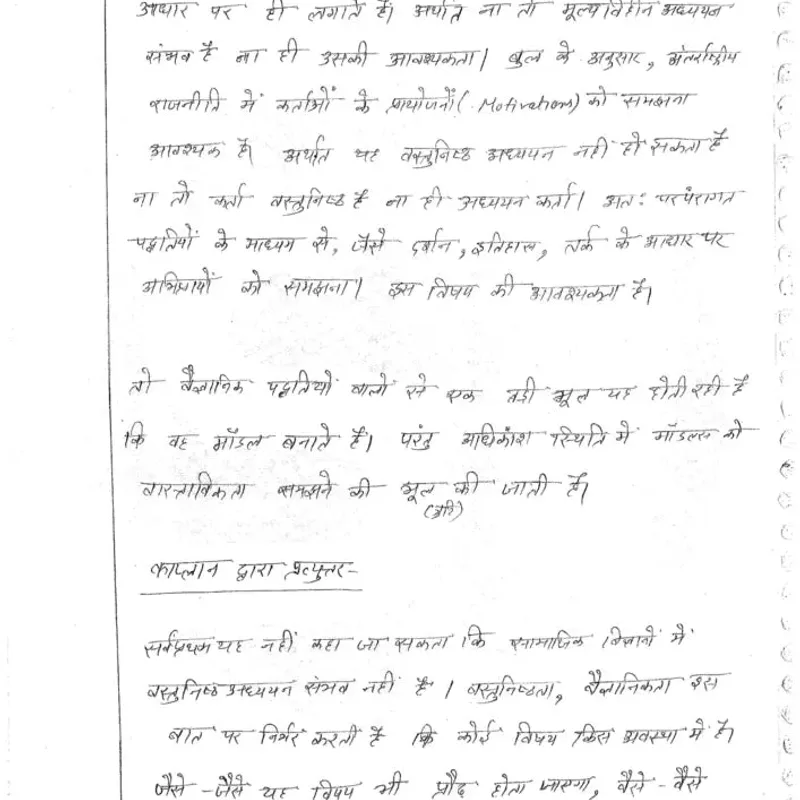 आधार पर ही लगाते हैं। अर्थात ना तो मूल्याविहीन अध्ययन
संभव है ना ही उसकी आवश्यकता। बुल के अनुसार, अंतर्राष्ट्रीय
राजनीति में कर्ताओं के प्रायोजनों (Motivations) को समझना
आवश्यक है। अर्थात यह वस्तुनिष्ठ अध्ययन नहीं हो सकता है
ना तो कर्ता वस्तुनिष्ठ है ना ही अध्ययन कर्ता। अत: परपंरागत
पद्धतियों के माध्यम से, जैसे दर्शन, इतिहास, तर्क के आधार पर
अभिप्रायों को समझना। इस विषय की आवश्यकता है।
तो वैज्ञानिक पद्धतियों वालो से एक बड़ी भूल यह होती रही है
कि वह मॉडल बनाते हैं। परंतु अधिकांश स्थिति में मॉडल्स को
वास्ताविकता समझने की भूल की जाती है।
काप्लान द्वारा प्रत्युत्तर-
सर्वप्रथम यह नहीं कहा जा सकता कि सामाजिक विज्ञानों में
वस्तुनिष्ठ अध्ययन संभव नहीं है। वस्तुनिष्ठता, वैज्ञानिकता इस
बात पर निर्भर करती है कि कोई विषय किस अवस्था में है।
जैसे-जैसे यह विषय भी प्रौढ़ होता जाएगा, वैसे-वैसे